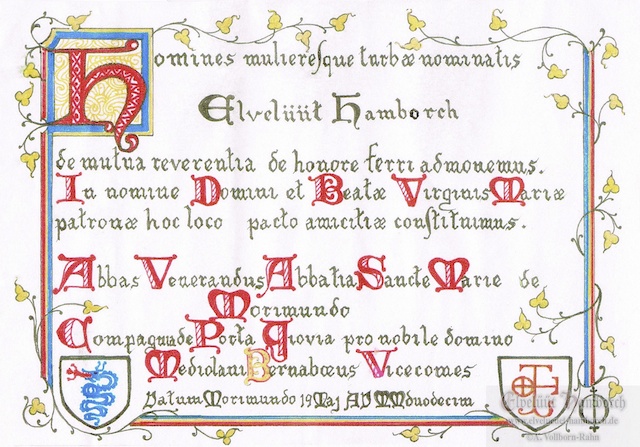 Homines mulieresque turbæ nominatis
Elvelüüt Hamborch
de mutua reverentia de honore ferri admonemus.
In nomine Domini et Beatæ Virginis Mariæ
patronæ hoc loco pacto amicitiæ constituimus.
Abbas Venerandus Abbatia Sancte Marie de
Morimundo
Compagnia de Porta Giovia pro nobile domino
Mediolani Bernabœus Vicecomes
Datum Morimundo 19 Maj AD MMduodecim
Elvelüüt Hamborch
www.elveluuet-hamborch.de
A. Vollborn-Rahn